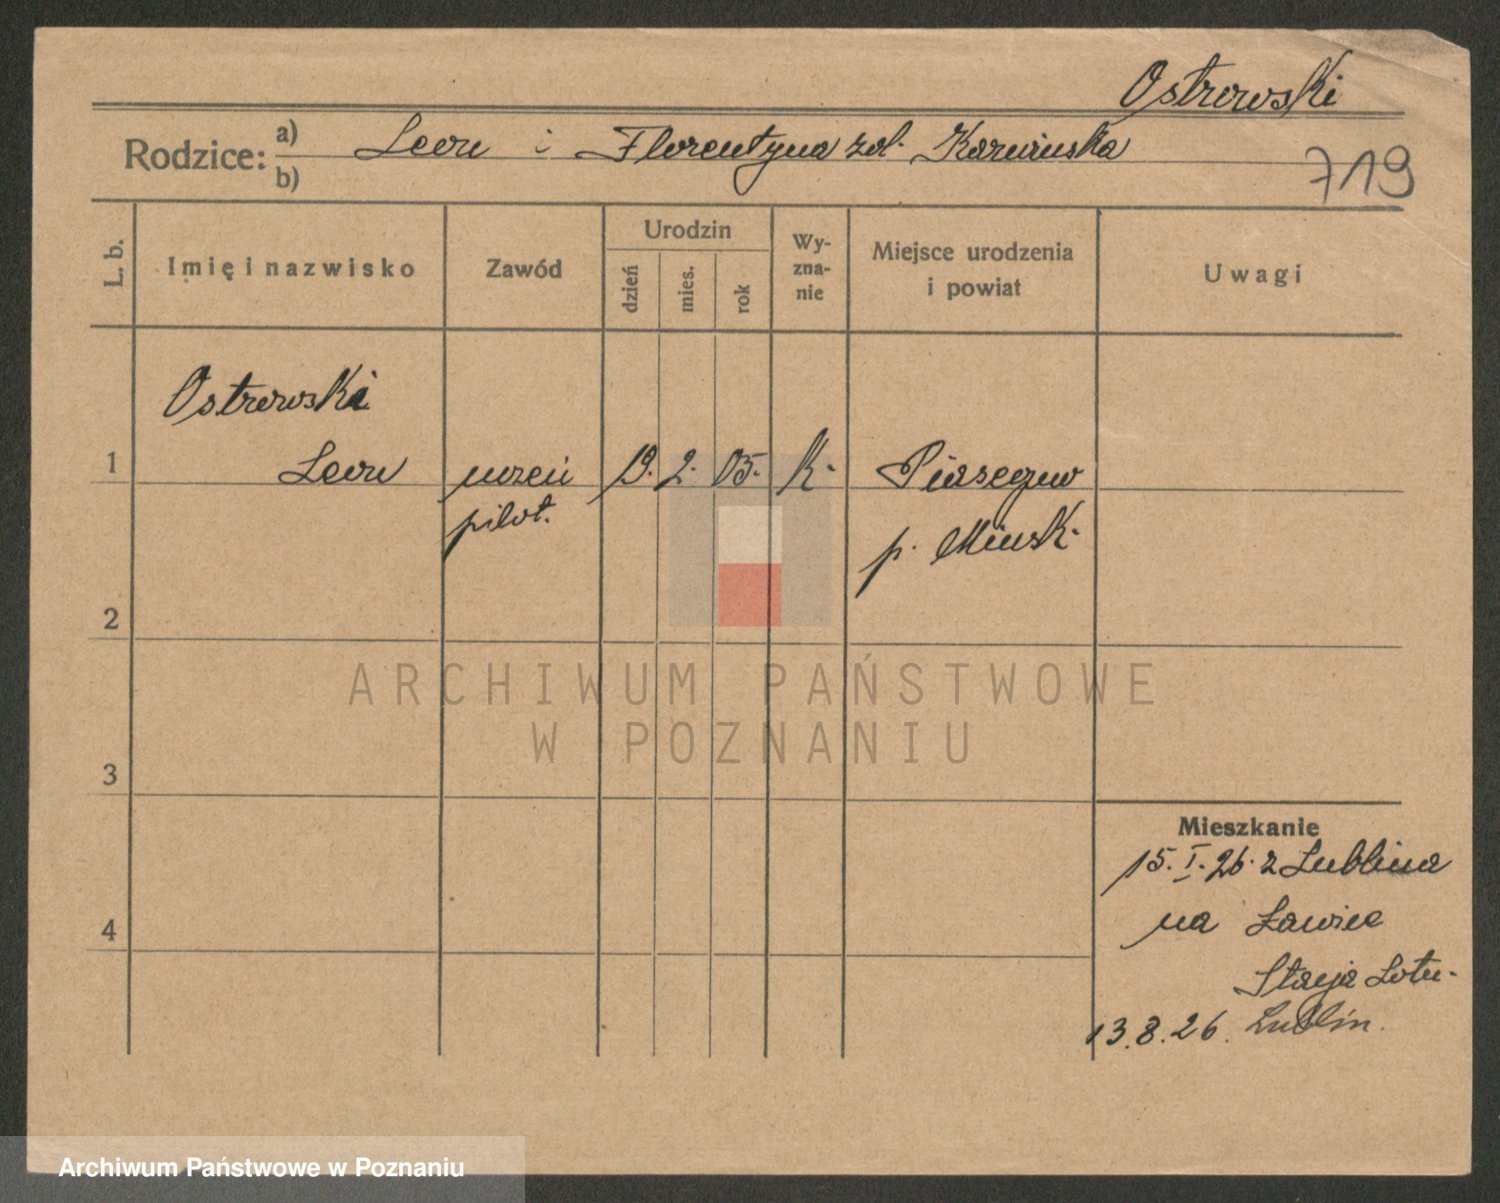 Ostrowski
Rodzice: a) Leon i Florentyna zol. Karwińska
b)
719
L. b. Imię i nazwisko Zawód Urodzin dzień mies. rok Wyznanie Miejsce urodzenia i powiat Uwagi
Ostrowski
1 Leon uczeń 19. 2. 05. k. Piaseczno
pilot. p. Mińsk
2
ARCHIWUM PAŃSTWOWE
W POZNANIU
3
Mieszkanie
15. I. 26. z Lublina
4 na Ławice
Stacja Lotn.
13.8.26. Lublin.
Archiwum Państwowe w Poznaniu